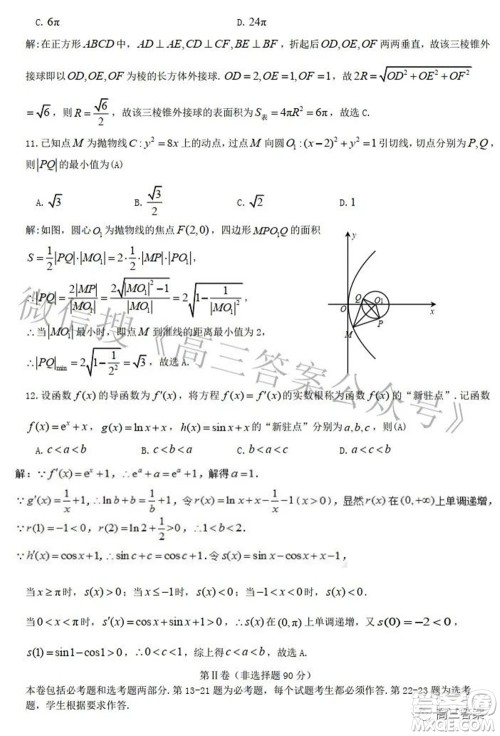 C. 6π D. 24π
解:在正方形ABCD中，AD⊥AE,CD⊥CF,BE⊥BF，折起后OD,OE,OF两两垂直，故该三棱锥外
接球即以OD,OE,OF为棱的长方体外接球. OD=2,OE=1,OF=1，故2R=√(OD²+OE²+OF²)
=√6，则R=√6/2，故该三棱锥外接球的表面积为S表=4πR²=6π，故选C.
11.已知点M为抛物线C:y²=8x上的动点，过点M向圆O₁:(x-2)²+y²=1引切线，切点分别为P,Q，
则|PQ|的最小值为(A)
A. √3 B. √3/2 C. √2 D. 1
解:如图，圆心O₁为抛物线的焦点F(2,0)，四边形MPO₁Q的面积
S=1/2|PQ|·|MO₁|=2·1/2·|MP|·|PO₁|,
∴|PQ|=2|MP|/|MO₁|=2√(|MO₁|²-1)/|MO₁|=2√(1-1/|MO₁|²)
∴当|MO₁|最小时，即点M到准线的距离最小值为2，
∴|PQ|min=2√(1-1/2²)=√3，故选A.
y
O
Q
O₁
x
P
M
12.设函数f(x)的导函数为f′(x)，将方程f(x)=f′(x)的实数根称为函数f(x)的“新驻点”.记函数
f(x)=eˣ+x，g(x)=lnx+x，h(x)=sinx+x的“新驻点”分别为a,b,c，则(A)
A. c<a<b B. c<b<a C. a<c<b D. a<b<c
解：∵f′(x)=eˣ+1,∴eᵃ+a=eᵃ+1,解得a=1.
∵g′(x)=1/x+1,∴lnb+b=1/b+1,令r(x)=lnx+x-1/x-1(x>0),显然r(x)在(0,+∞)上单调递增，
∵r(1)=-1<0，r(2)=ln2+1/2>0,∴1<b<2.
∵h′(x)=cosx+1,∴sinc+c=cosc+1.令s(x)=sinx-cosx+x-1,
当x≥π时，s(x)>0；当x≤-1时，s(x)<0；
当0<x<π时，s′(x)=cosx+sinx+1>0，∴s(x)在(0,π)上单调递增，又s(0)=-2<0，
s(1)=sin1-cos1>0，∴0<c<1，综上得c<a<b．故选A．
第Ⅱ卷(非选择题 90分)
本卷包括必考题和选考题两部分.第13-21题为必考题，每个试题考生都必须作答.第22-23题为选考
题，学生根据要求作答.
微信搜《高三答案公众号》
高三答案